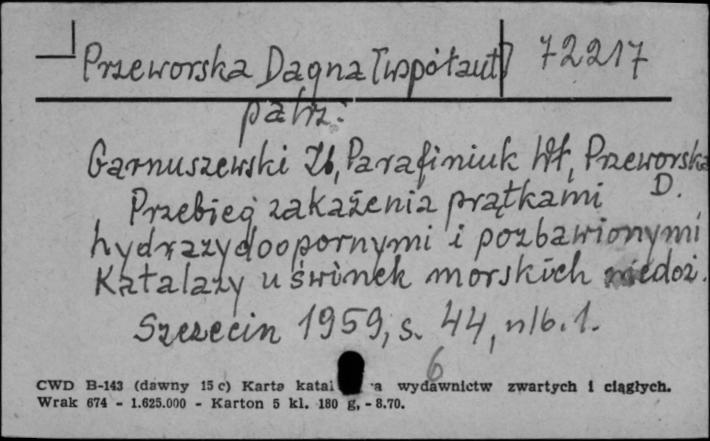 Przeworska Dagna [współaut] 72217
patrz:
Garnuszewski Zb, Parafiniuk Wł, Przeworska
D.
Przebieg zakażenia prątkami
hydrazydoopornymi i pozbawionymi
Katalazy u świnek morskich niedoż.
Szczecin 1959, s. 44, nlb. 1.
6
CWD B-143 (dawny 15 c) Karta katal a wydawnictw zwartych i ciągłych.
Wrak 674 - 1.625.000 - Karton 5 kl. 180 g, - 8.70.